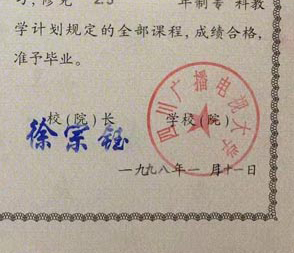 习,修完 2.5 年制专 科教
学计划规定的全部课程,成绩合格,
准予毕业。
校(院)长 学校(院)
徐宗钰
四川广播电视大学
一九九八年 一 月十一日